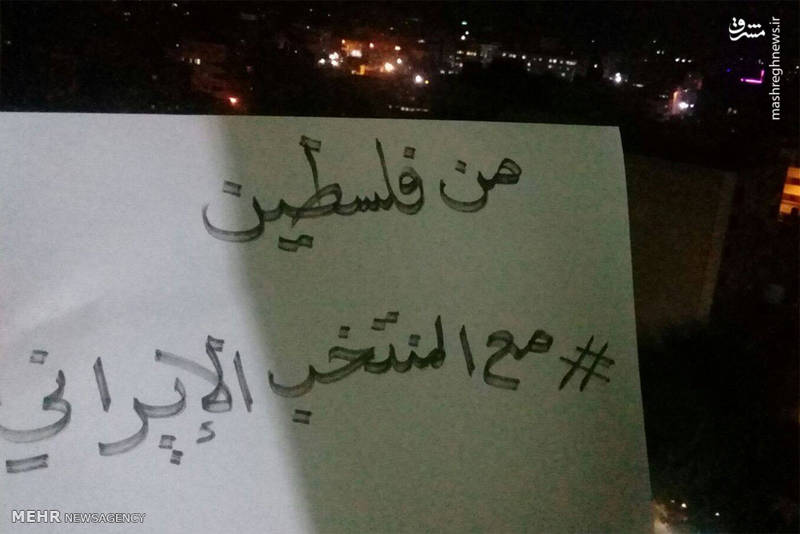 مشرق
mashreghnews.ir
من فلسطين
#مع المنتخب الإيراني
MEHR NEWSAGENCY